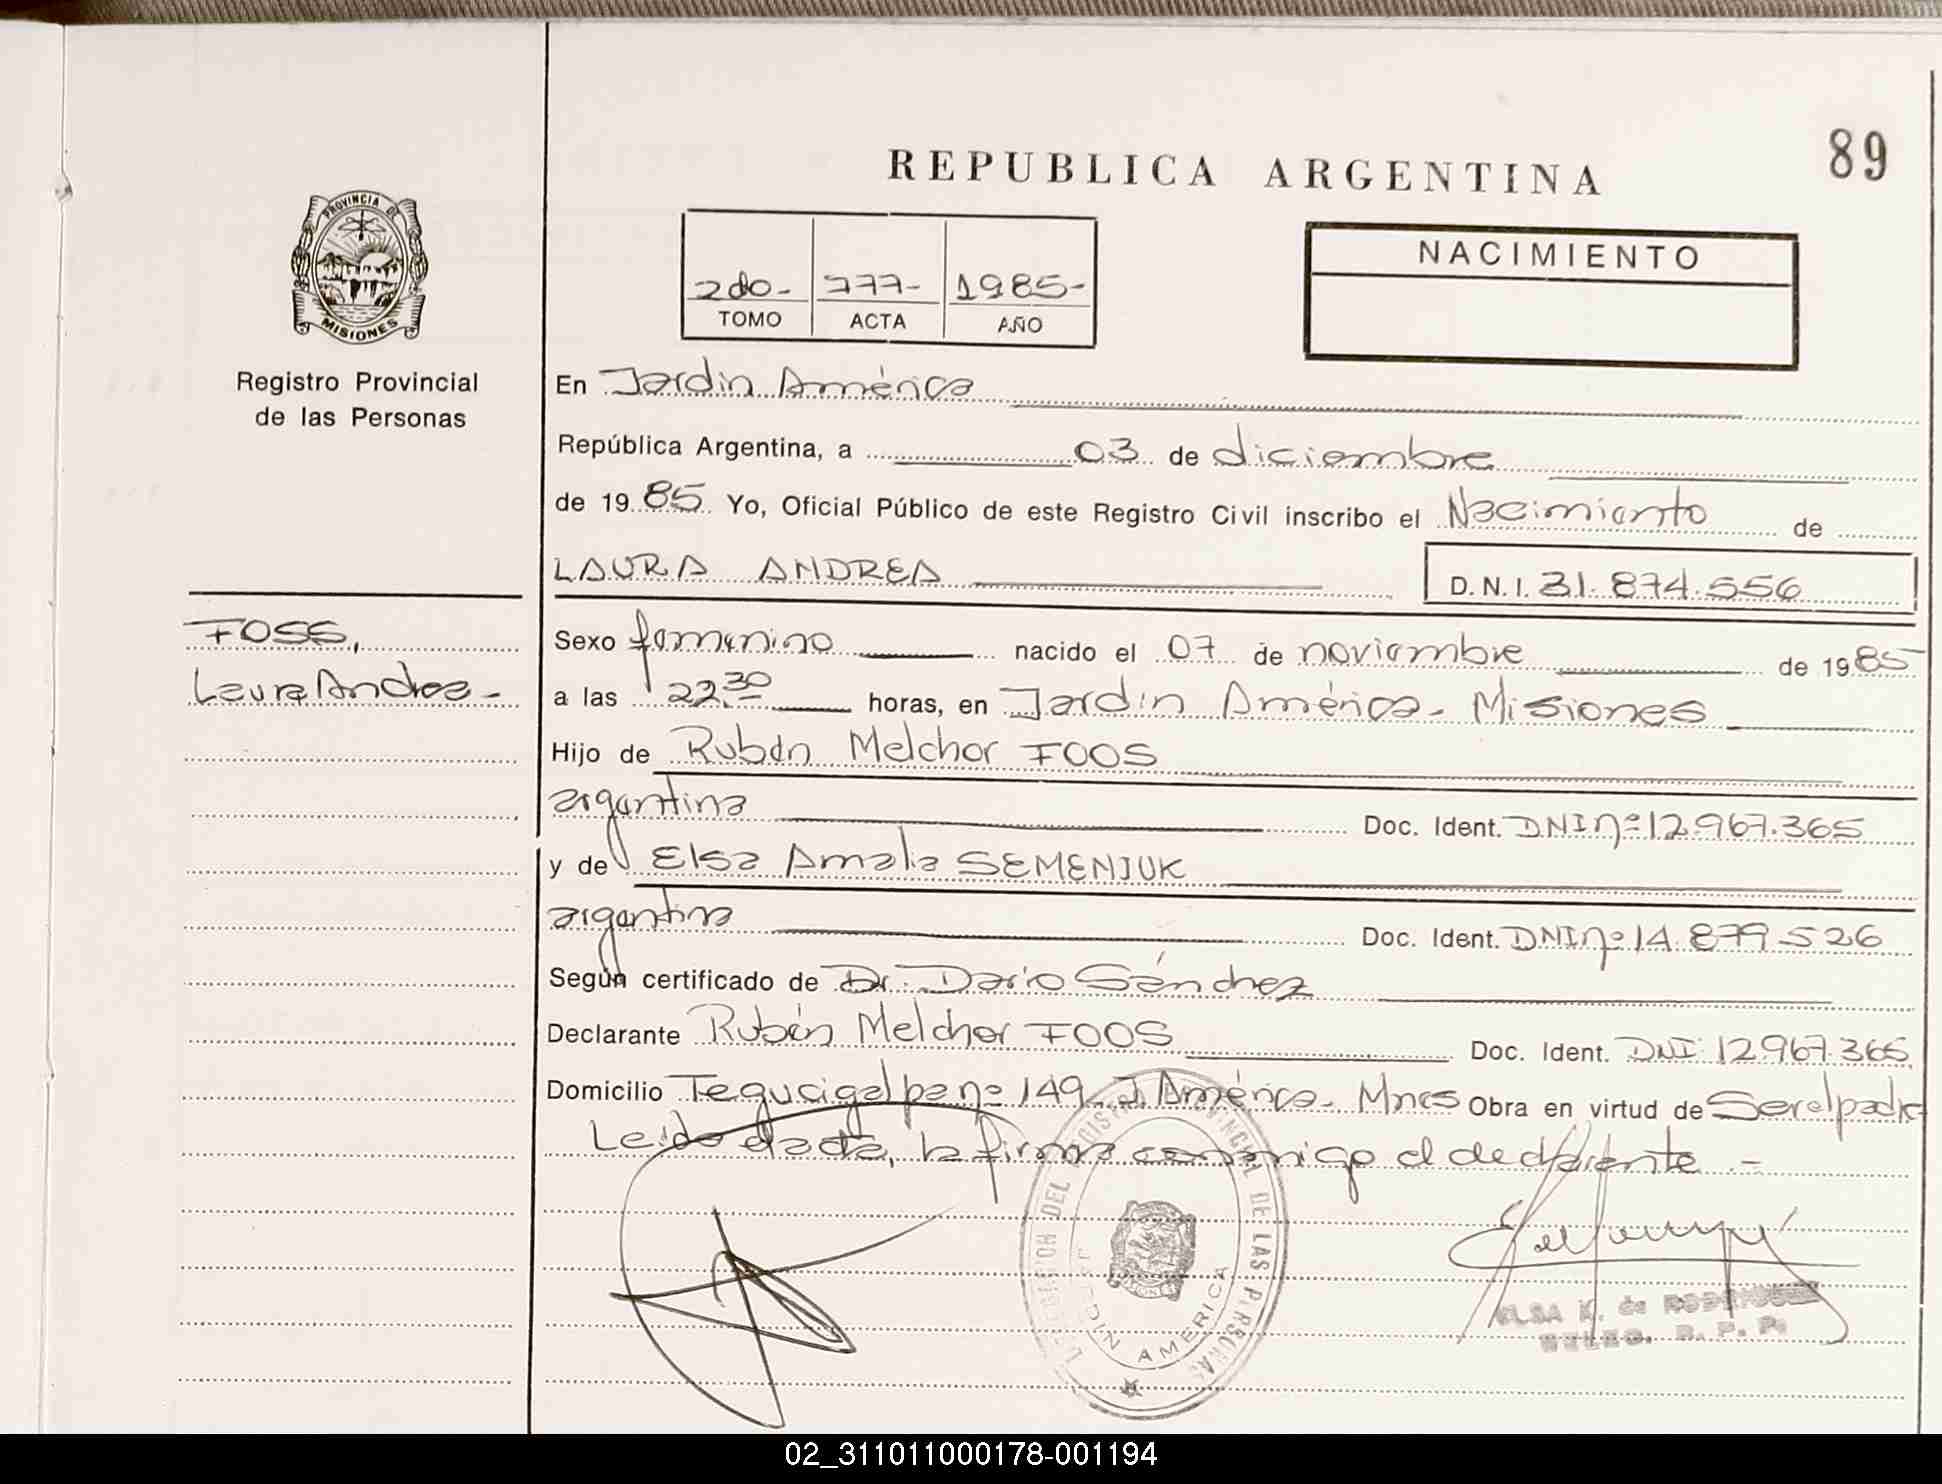 89
REPUBLICA ARGENTINA
PROVINCIA DE
MISIONES
Registro Provincial
de las Personas
2do- 777- 1985-
TOMO ACTA AÑO
NACIMIENTO
En Jardín América
República Argentina, a 03 de diciembre
de 1985 Yo, Oficial Público de este Registro Civil inscribo el Nacimiento de
LAURA ANDREA D.N.I. 31.874.556
FOSS,
Laura Andrea -
Sexo femenino nacido el 07 de noviembre de 1985
a las 22.30 horas, en Jardín América - Misiones
Hijo de Rubén Melchor FOOS
argentina Doc. Ident. DNI nº 12.967.365
y de Elsa Amalia SEMENIUK
argentina Doc. Ident. DNI nº 14.879.526
Según certificado de Dr. Dario Sánchez
Declarante Rubén Melchor FOOS Doc. Ident. DNI 12.967.365
Domicilio Tegucigalpa nº 149 J. América - Mnes Obra en virtud de Ser el padre
Leída el acta, la firma conmigo el declarante. -
DEL REGISTRO PROVINCIAL DE LAS PERSONAS
JARDIN AMERICA
ELSA K. de
DELEG. R. P. P.
02_311011000178-001194